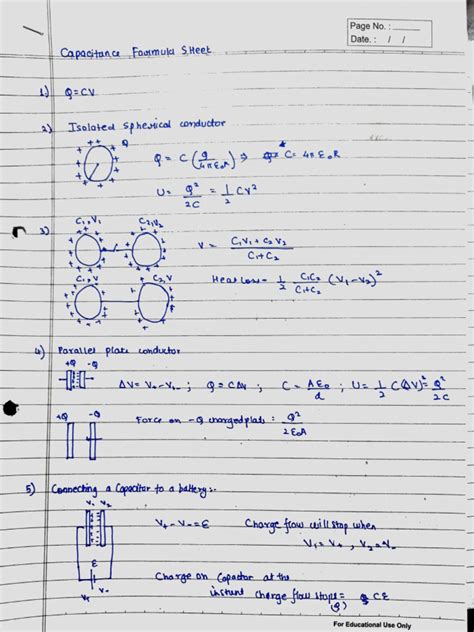 Page No. :
Date. : / /
Capacitance Formula Sheet
1) Q=CV
2) Isolated spherical conductor
Q
Q = C (Q/4πε₀R) ⇒ C = 4πε₀R
U = Q²/2C = 1/2 CV²
3) C₁,V₁ C₂,V₂
V = C₁V₁+C₂V₂/C₁+C₂
C₁,V C₂,V
Heat Loss = 1/2 C₁C₂/C₁+C₂ (V₁-V₂)²
4) Parallel plate conductor
+Q -Q
ΔV = V₊-V₋ ; Q = CΔV ; C = Aε₀/d ; U = 1/2 C(ΔV)² = Q²/2C
+Q -Q
Force on -Q charged plate : Q²/2ε₀A
5) Connecting a Capacitor to a battery:-
V₁ V₂
V₊-V₋ = ε Charge flow will stop when
V₁=V₊ , V₂=V₋
ε
V₊ V₋
Charge on Capacitor at the
instant charge flow stops = Cε
(Q)
For Educational Use Only